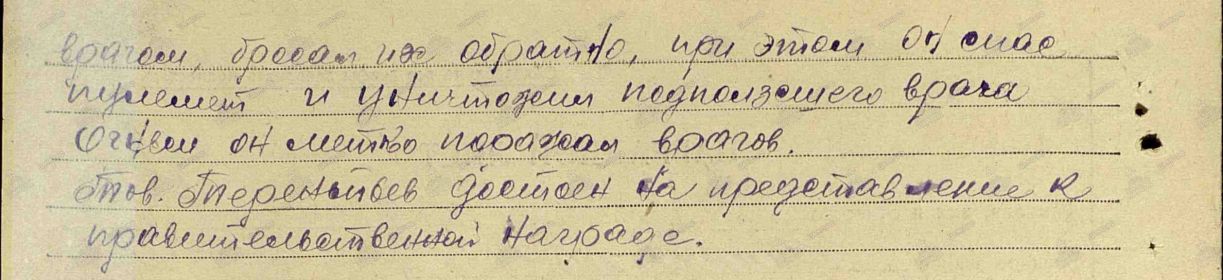 врагом, бросал их обратно, при этом он спас
пулемет и уничтожил подползшего врага
Огнем он метко поражал врагов.
Тов. Терентьев достоен на представление к
правительственной награде.